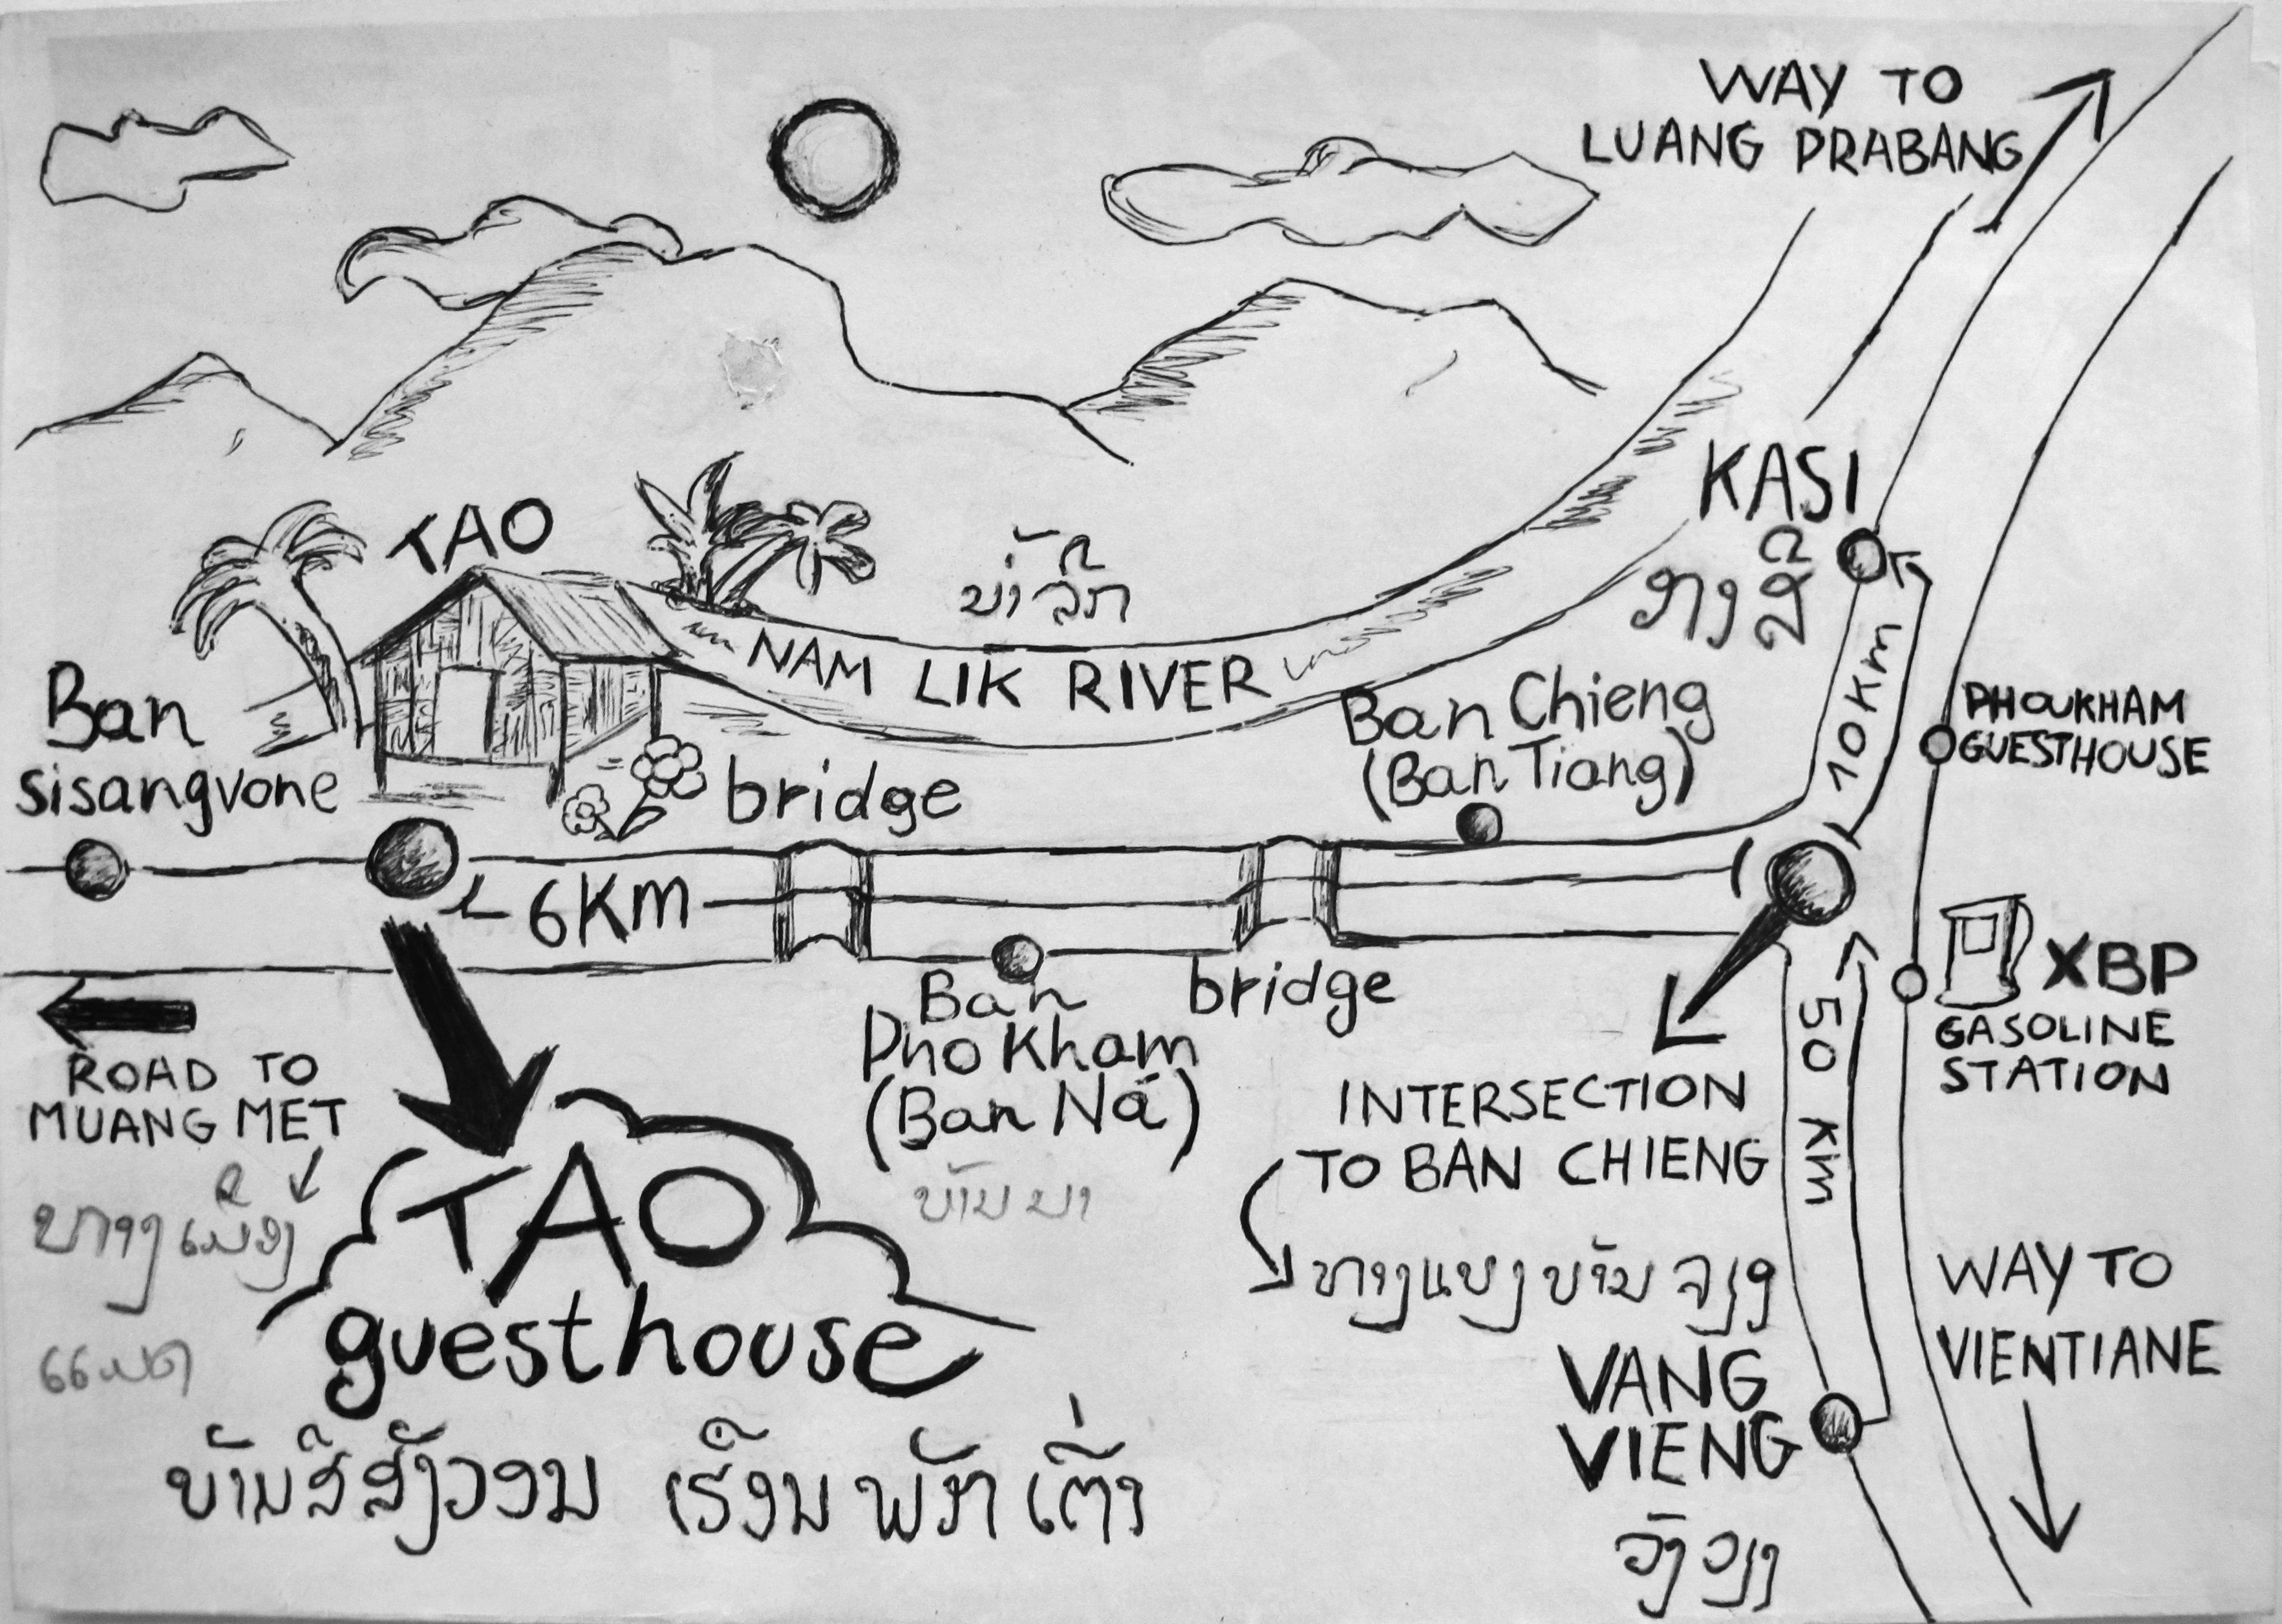 WAY TO
LUANG PRABANG
KASI
ກາສີ
TAO
ນ້ຳລີກ
NAM LIK RIVER
10 Km
Ban
sisangvone
bridge
Ban Chieng
(Ban Tiang)
PHOUKHAM
GUESTHOUSE
6 KM
Ban
Pho Kham
(Ban Ná)
ບ້ານນາ
bridge
XBP
GASOLINE
STATION
50 Km
ROAD TO
MUANG MET
ທາງເມືອງ
ແມດ
INTERSECTION
TO BAN CHIENG
ທາງແຍງບ້ານຈຽງ
TAO
guesthouse
WAY TO
VIENTIANE
VANG
VIENG
ວັງວຽງ
ບ້ານສີສັງວອນ ເຮືອນພັກເຕົ່າ